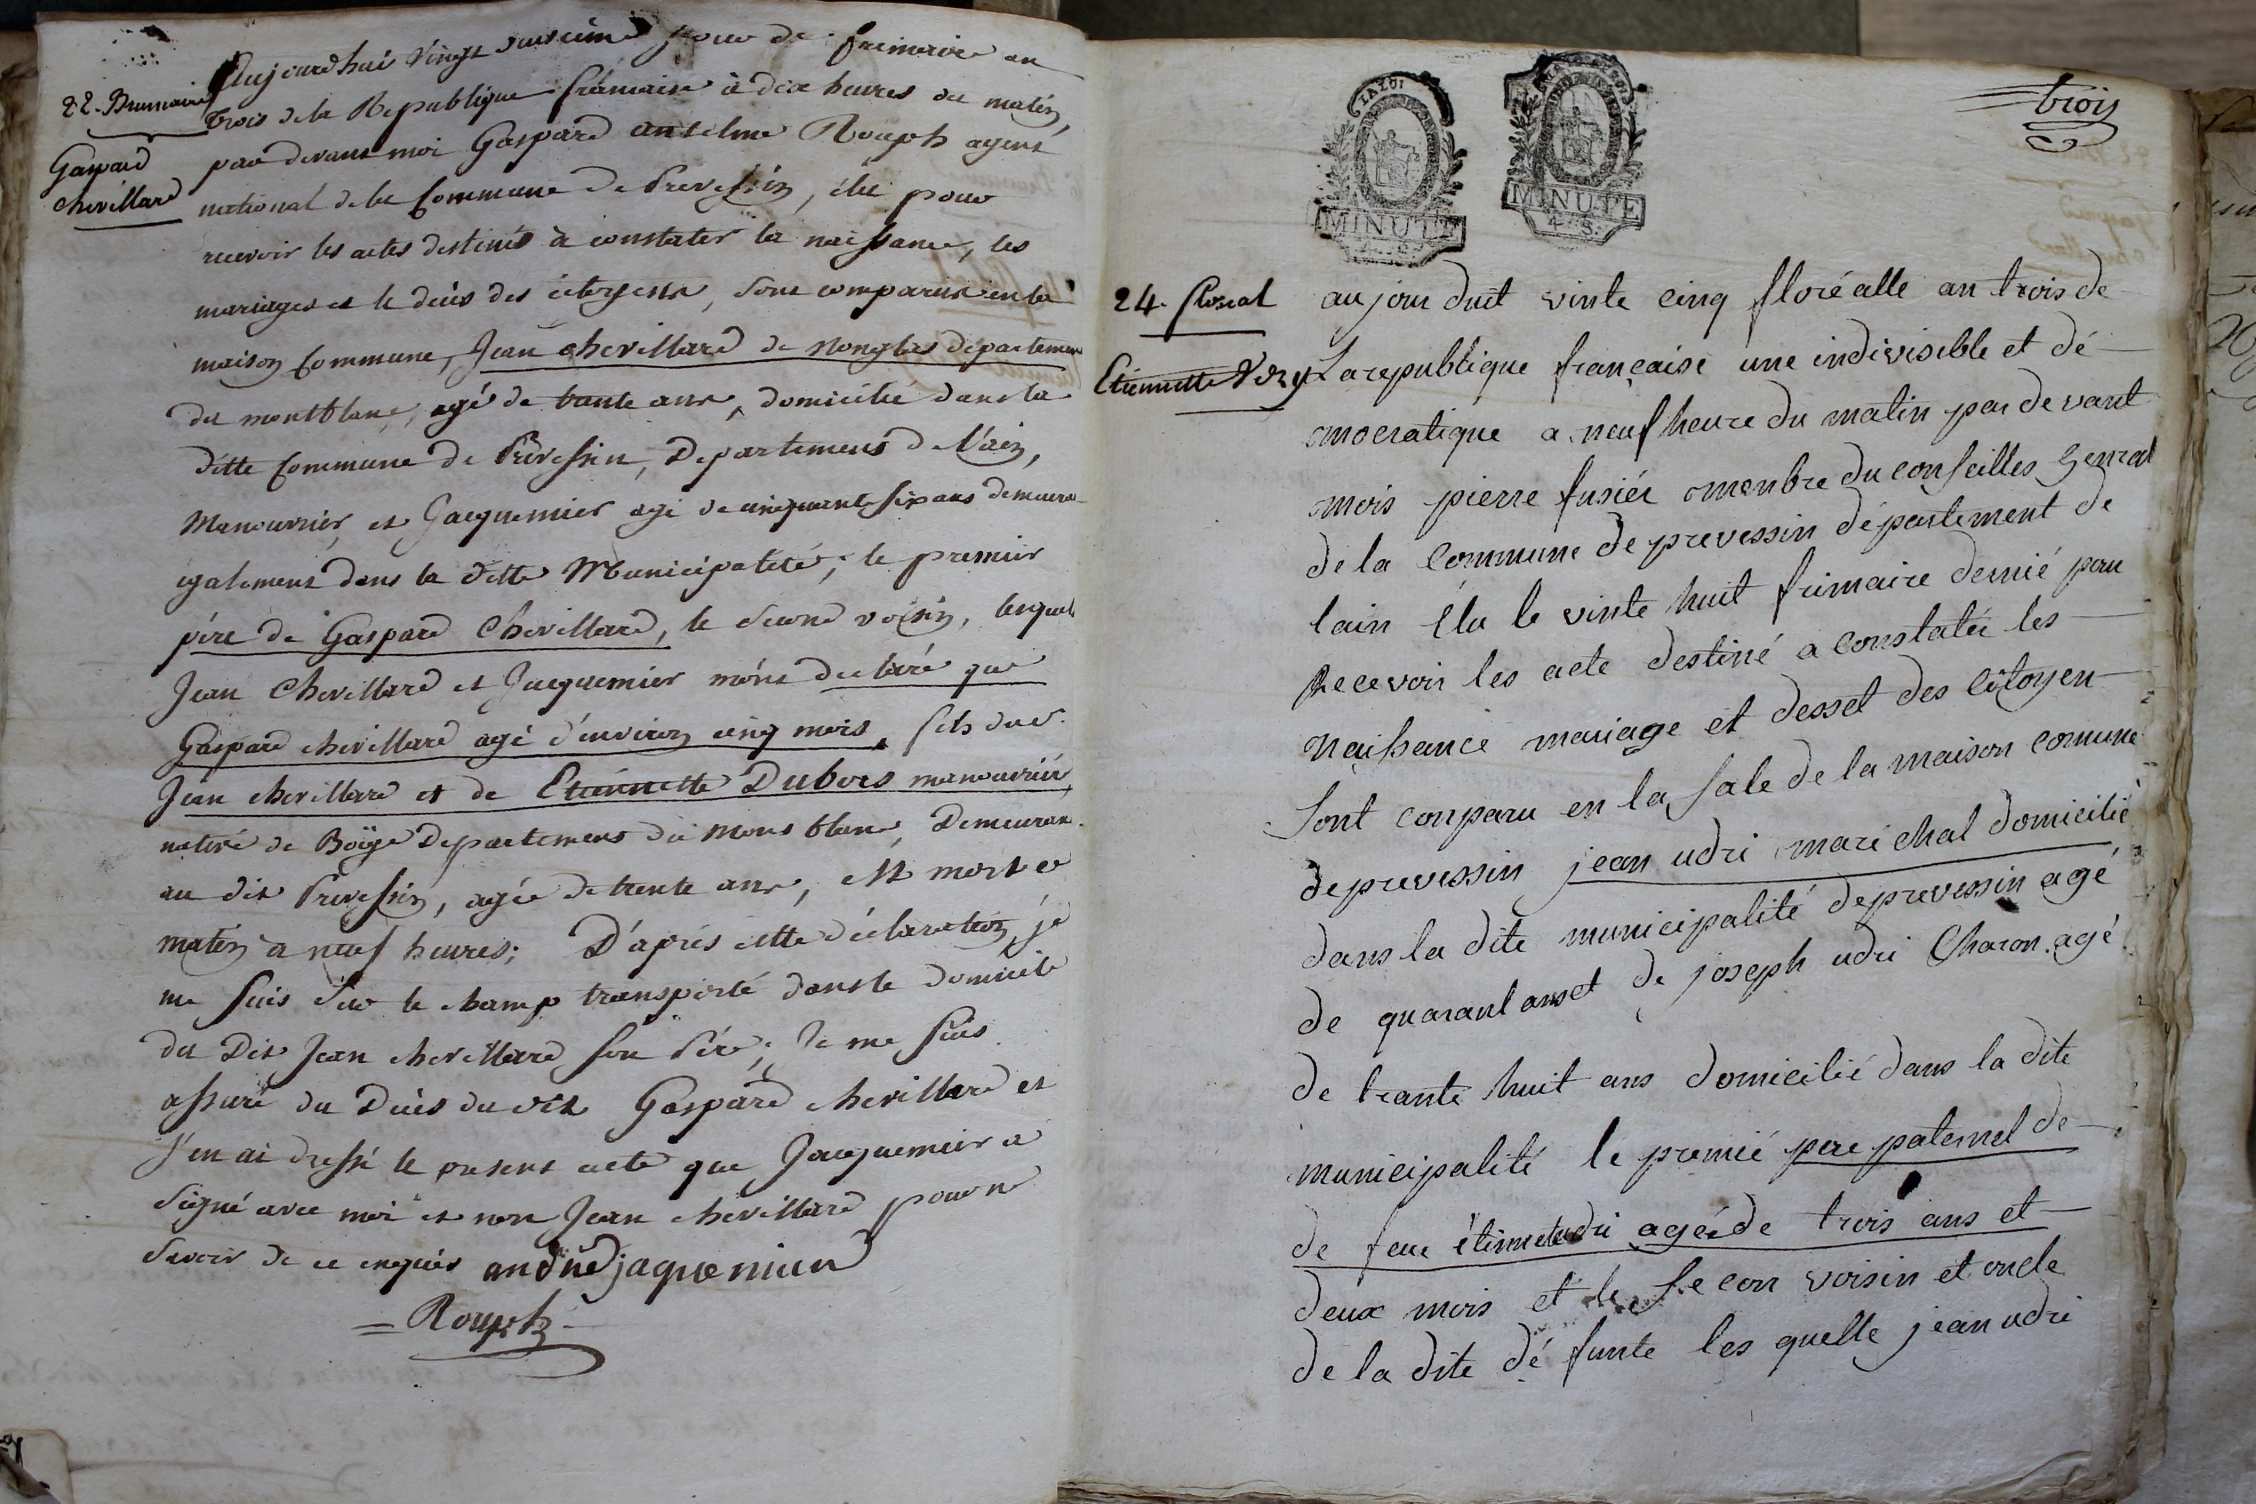 22. Brumaire
Gaspard
chevillard
Aujourdhui vingt deuxieme jour de frimaire an
trois de la Republique francaise à dix heures du matin,
par devant moi Gaspard antelme Rouph agent
national de la Commune de Prevessin, élu pour
recevoir les actes destinés à constater la naissance, les
mariages et le décès des citoyens, sont comparus en la
maison Commune, Jean chevillard de nonglas departement
du montblanc, agé de trante ans, domicilié dans la
ditte Commune de Prévessin, Departement de l'ain,
Manouvrier, et Jacquemier agé de cinquante six ans demeurant
egalement dans la ditte Municipalité; le premier
pére de Gaspard Chevillard, le second voisin, lesquels
Jean Chevillard et Jacquemier m'ont declaré que
Gaspard chevillard agé d'environ cinq mois, fils dud.
Jean chevillard et de Etiennette Dubois manouvrier,
native de Boëge Departement du Mont blanc, Demeurant
au dit Prevessin, agée de trente ans, est mort ce
matin a neuf heures; D'aprés cette déclaration, je
me suis sur le champ transporté dans le domicile
du Dit Jean chevillard son Pére; Je me suis
assuré du Décès du dit Gaspard chevillard et
j'en ai dressé le present acte que Jacquemier a
signé avec moi et non Jean chevillard pour ne
savoir de ce enquis andrié jaquemier
= Rouph
LA LOI
MINUTE
MINUTE
4. S.
trois
24. floreal
Etiennette Vdry
aujourduit vinte cinq floréalle an trois de
La republique française une indivisible et dé
mocratique a neuf heure du matin par devant
mois pierre fusiér menbre du conseilles genral
de la commune de prevessin département de
lain élu le vinte huit frimaire dernié pour
Recevoir les acte destiné a constatér les
naissance mariage et desset des citoyen
Sont conparu en la sale de la maison comune
deprevessin jean udri marichal domicilié
dans la dite municipalité deprevessin agé
de quarant ans et de joseph udri Charon agé
de trante huit ans domicilié dans la dite
municipalité le premié pere paternel de
de feue étiennete udri ageé de trois ans et
deux mois et le secon voisin et oncle
de la dite défunte les quelle jean udri